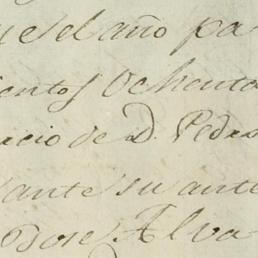 ue el año pa
ientos Ochenta
acio de D. Pedro
ante su ante
Dose Alva